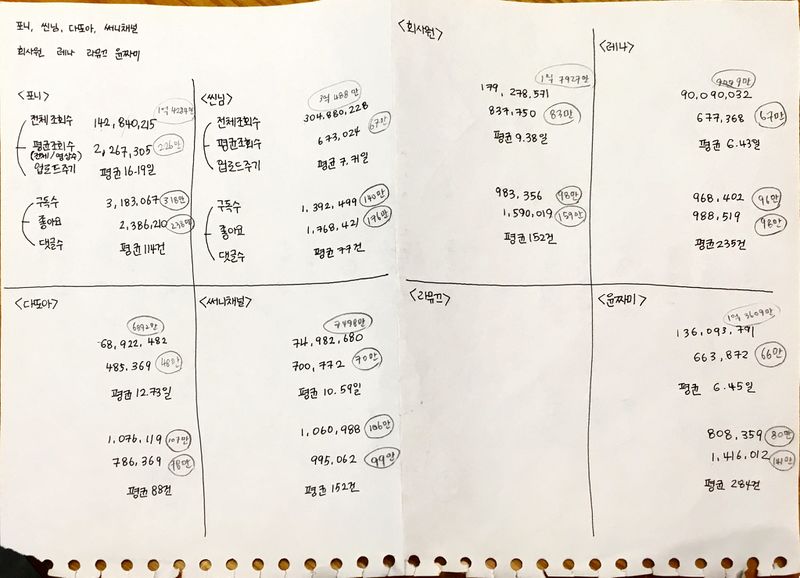 포니, 씬님, 다또아, 써니채널
회사원 레나 라뮤끄 윤짜미
<포니>
1억 4284만
전체조회수 142,840,215
평균조회수 2,267,305 226만
(전체/영상수)
업로드주기 평균 16.19일
구독수 3,183,067 318만
좋아요 2,386,210 238만
댓글수 평균 114건
<씬님>
3억 488만
전체조회수 304,880,228
평균조회수 673,024 67만
업로드주기 평균 7.71일
구독수 1,392,499 140만
좋아요 1,768,421 176만
댓글수 평균 77건
<회사원>
1억 7927만
179,278,571
837,750 83만
평균 9.38일
983,356 98만
1,590,019 159만
평균 152건
<레나>
9009만
90,090,032
677,368 67만
평균 6.43일
968,402 96만
988,519 98만
평균 235건
<다또아>
6892만
68,922,482
485,369 48만
평균 12.73일
1,076,119 107만
786,369 78만
평균 88건
<써니채널>
7498만
74,982,680
700,772 70만
평균 10.59일
1,060,988 106만
995,062 99만
평균 152건
<라뮤끄>
<윤짜미>
1억 3609만
136,093,791
663,872 66만
평균 6.45일
808,359 80만
1,416,012 141만
평균 284건